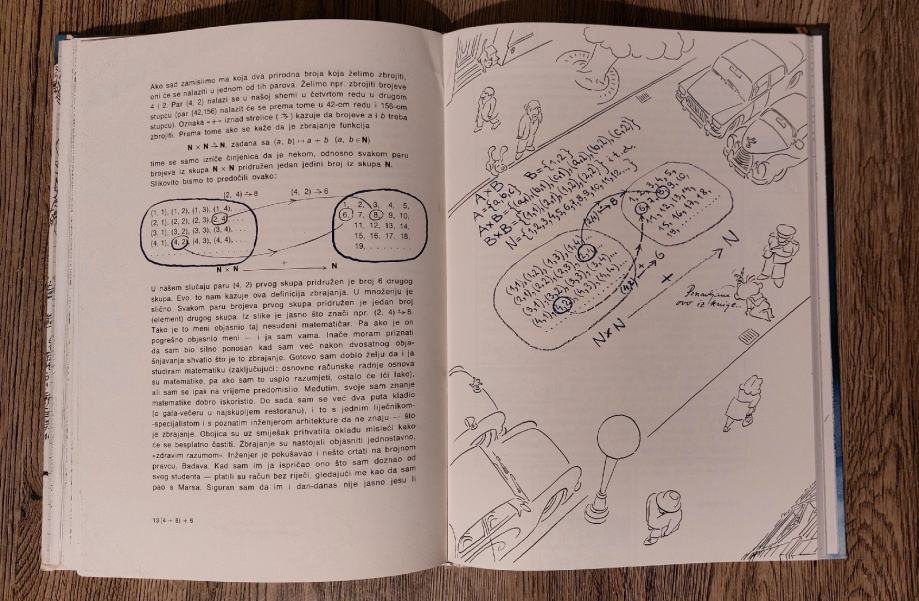 Ako sad zamislimo ma koja dva prirodna broja koja želimo zbrojiti,
oni će se nalaziti u jednom od tih parova. Želimo npr. zbrojiti brojeve
4 i 2. Par (4, 2) nalazi se u našoj shemi u četvrtom redu u drugom
stupcu (par (42,156) nalazit će se prema tome u 42-om redu i 156-om
stupcu). Oznaka »+« iznad strelice ( ) kazuje da brojeve a i b treba
zbrojiti. Prema tome ako se kaže da je zbrajanje funkcija
N × N → N, zadana sa (a, b) ↦ a + b (a, b ∈ N)
time se samo izriče činjenica da je nekom, odnosno svakom paru
brojeva iz skupa N × N pridružen jedan jedini broj iz skupa N.
Slikovito bismo to predočili ovako:
(2, 4) → 8 (4, 2) → 6
(1, 1), (1, 2), (1, 3), (1, 4)
(2, 1), (2, 2), (2, 3), (2, 4)
(3, 1), (3, 2), (3, 3), (3, 4)
(4, 1), (4, 2), (4, 3), (4, 4),
1, 2, 3, 4, 5,
6, 7, 8, 9, 10,
11, 12, 13, 14,
15, 16, 17, 18,
19,
N × N + N
U našem slučaju paru (4, 2) prvog skupa pridružen je broj 6 drugog
skupa. Evo, to nam kazuje ova definicija zbrajanja. U množenju je
slično. Svakom paru brojeva prvog skupa pridružen je jedan broj
(element) drugog. Iz slike je jasno što znači npr. (2, 4) → 8.
Tako je to meni objasnio taj nesuđeni matematičar. Pa ako je on
pogrešno objasnio meni — i ja sam vama. Inače moram priznati
da sam bio silno ponosan kad sam već nakon dvosatnog obja-
šnjavanja shvatio što je to zbrajanje. Gotovo sam dobio želju da i ja
studiram matematiku (zaključujući: osnovne računske radnje osnova
su matematike, pa ako sam to uspio razumjeti, ostalo će ići lako),
ali sam se ipak na vrijeme predomislio. Međutim, svoje sam znanje
matematike dobro iskoristio. Do sada sam se već dva puta kladio
(o gala-večeru u najskupljem restoranu), i to s jednim liječnikom-
-specijalistom i s poznatim inženjerom arhitekture da ne znaju — što
je zbrajanje. Obojica su uz smiješak prihvatila okladu misleći kako
će se besplatno častiti. Zbrajanje su nastojali objasniti jednostavno,
»zdravim razumom«. Inženjer je pokušavao i nešto crtati na brojnom
pravcu. Badava. Kad sam im ja ispričao ono što sam doznao od
svog studenta — platili su račun bez riječi, gledajući me kao da sam
pao s Marsa. Siguran sam da im i dan-danas nije jasno jesu li
13 (4 + 8) + 6
A×B
A={a,b,c} B={1,2}
A×B={(a,1),(b,1),(c,1),(a,2),(b,2),(c,2)}
B×B={(1,1),(2,1),(1,2),(2,2)} i t. d.
N={1,2,3,4,5,6,7,8,9,10,11,12...}
(2,4)→8
(1,1),(1,2),(1,3),(1,4)...
(2,1),(2,2),(2,3),(2,4)
(3,1),(3,2),(3,3),(3,4)...
(4,1),(4,2),(4,3),(4,4)...
1, 2, 3, 4, 5,
6, 7, 8, 9, 10,
11, 12, 13, 14,
15, 16, 17, 18,
19,
(4,2)→6
N×N + N
ovo iz knjige